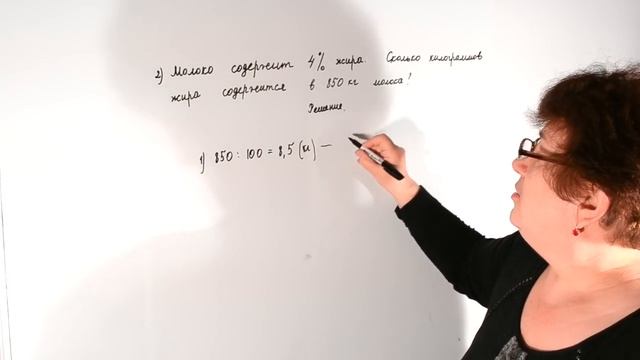 2) Молоко содержит 4% жира. Сколько килограммов
жира содержится в 850 кг молока?
Решение.
1) 850 : 100 = 8,5 (кг) —